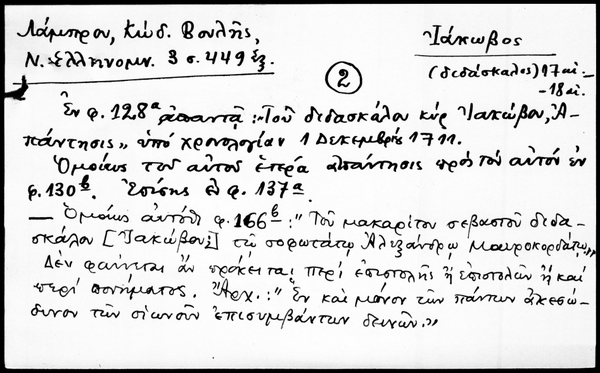 Λάμπρου, Κώδ. Βουλῆς,
Ν. Ἑλληνομν. 3 σ. 449 ἑξ.
Ἰάκωβος
(διδάσκαλος) 17 αἰ. -
- 18 αἰ.
2
Ἐν φ. 128ᵃ ἀπαντᾷ: "Τοῦ διδασκάλου κὺρ Ἰακώβου, Ἀ-
πάντησις" ὑπὸ χρονολογίαν 1 Δεκεμβρίου 1711.
Ὁμοίως τοῦ αὐτοῦ ἑτέρα ἀπάντησις πρὸς τὸν αὐτόν ἐν
φ. 130ᵇ. Ἐπίσης ἐν φ. 137ᵃ.
— Ὁμοίως αὐτόθι φ. 166ᵇ: "Τοῦ μακαρίτου σεβαστοῦ διδα-
σκάλου [Ἰακώβου;] τῷ σοφωτάτῳ Ἀλεξάνδρῳ Μαυροκορδάτῳ"
Δὲν φαίνεται ἂν πρόκειται περὶ ἐπιστολῆς ἢ ἐπιστολῶν ἢ καὶ
περὶ πονήματος. Ἀρχ.: "Ἓν καὶ μόνον τῶν πάντων ἀκεσώ-
δυνον τῶν ἐπισυμβάντων δεινῶν."